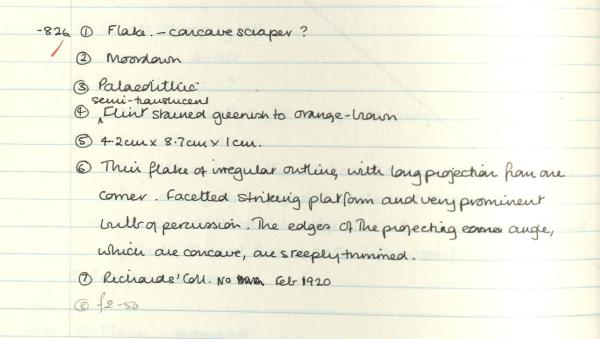 -826 ① Flake. – concave scraper ?
② Moordown
③ Palaeolithic
semi-translucent
④ ^ Flint stained greenish to orange-brown
⑤ 4.2cm x 8.7cm x 1cm.
⑥ Thin flake of irregular outline, with long projection from one
corner. Facetted striking platform and very prominent
bulb of percussion. The edges of the projecting corner angle,
which are concave, are steeply trimmed.
⑦ Richards' Coll. No Feb 1920
⑧ £2-50